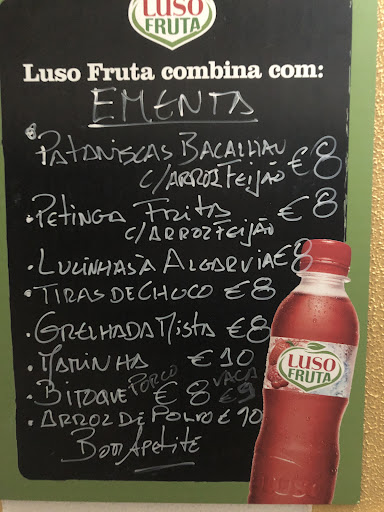 LUSO
FRUTA
Luso Fruta combina com:
EMENTA
• PATANISCAS BACALHAU €8
C/ARROZ FEIJÃO
• PETINGA FRITA €8
C/ARROZ FEIJÃO
• LULINHAS À ALGARVIA €8
• TIRAS DE CHOCO €8
• GRELHADA MISTA €8
• €10
• BITOQUE PORCO €8 VACA €9
• ARROZ DE POLVO €10
BOM APETITE
LUSO
FRUTA
LUSO